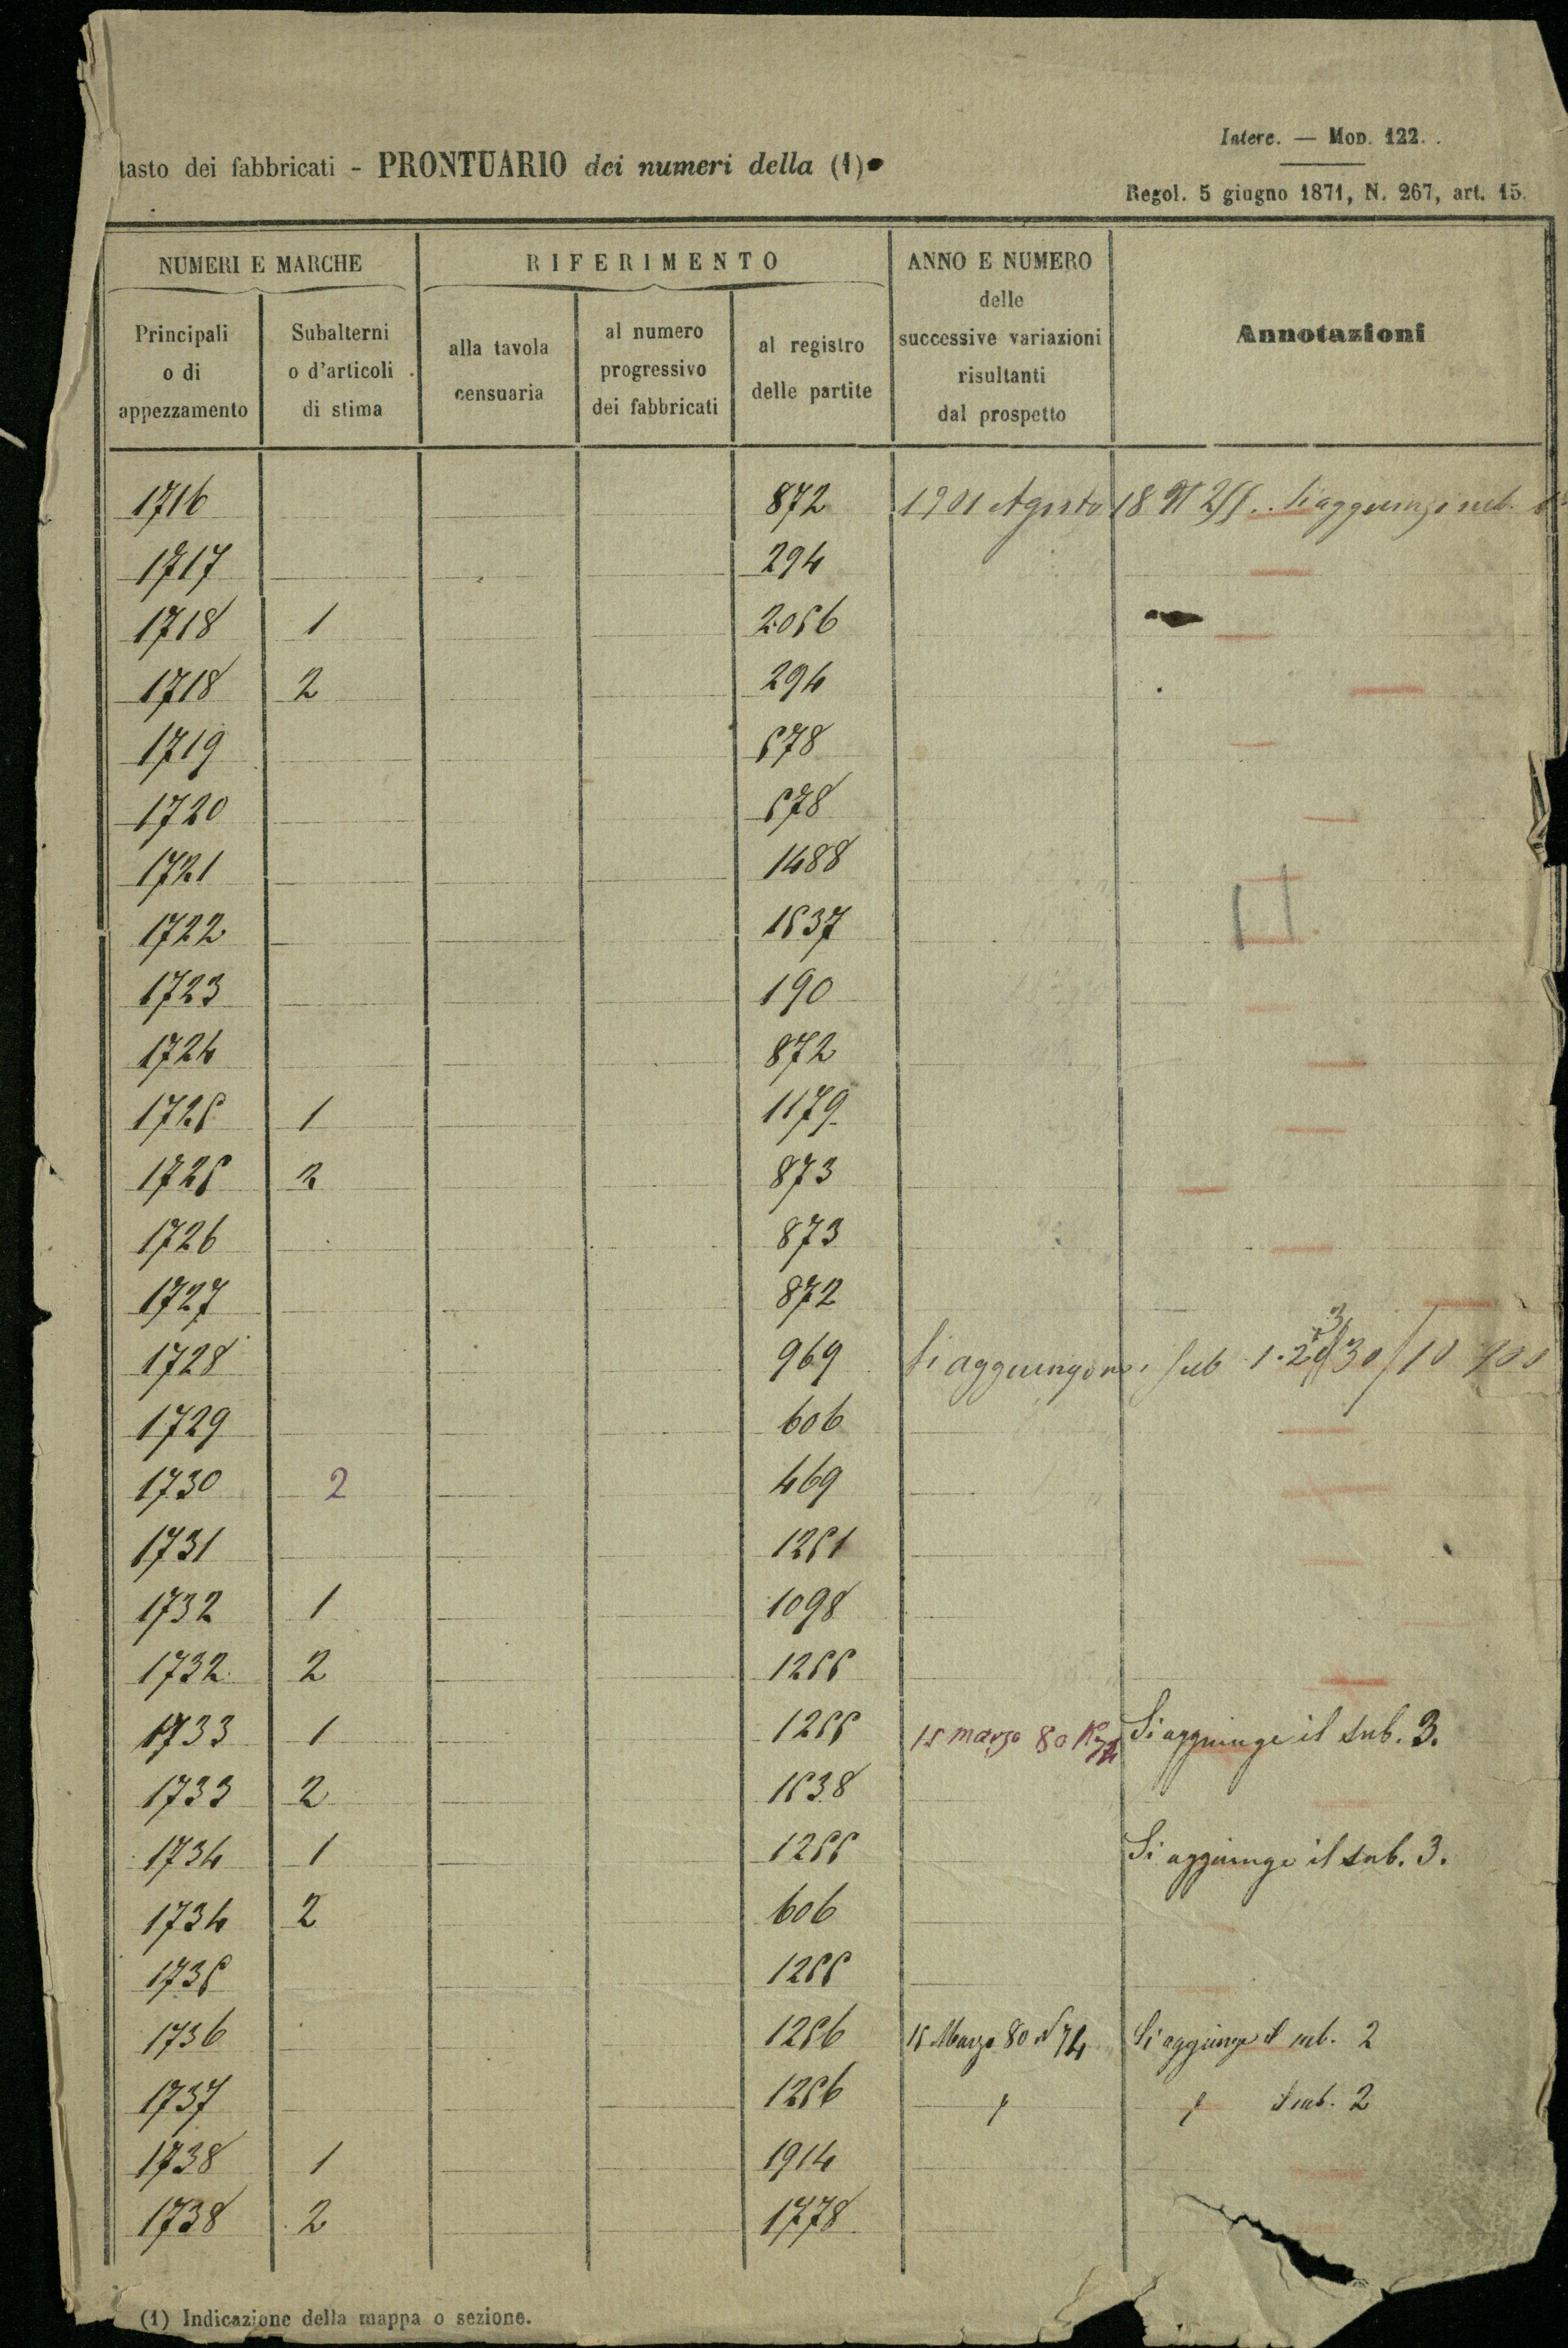 Interc. — Mod. 122.
tasto dei fabbricati - PRONTUARIO dei numeri della (1)
Regol. 5 giugno 1871, N. 267, art. 15.
NUMERI E MARCHE RIFERIMENTO ANNO E NUMERO delle successive variazioni risultanti dal prospetto Annotazioni
Principali o di appezzamento Subalterni o d'articoli di stima alla tavola censuaria al numero progressivo dei fabbricati al registro delle partite
1716 872 1901 Agosto 18 N 255. Si aggiunge sub.
1717 294
1718 1 2056
1718 2 294
1719 578
1720 578
1721 1488
1722 1537
1723 190
1724 872
1725 1 1179
1725 2 873
1726 873
1727 872
1728 969 Si aggiungono i sub 1.2
1729 606
1730 2 469
1731 1251
1732 1 1098
1732 2 1255
1733 1 1255 15 marzo 80 Si aggiunge il sub. 3.
1733 2 1538
1734 1 1255 Si aggiunge il sub. 3.
1734 2 606
1735 1255
1736 1256 15 Marzo 80 N 74 Si aggiunge il sub. 2
1737 1256 " " sub. 2
1738 1 1914
1738 2 1778
(1) Indicazione della mappa o sezione.